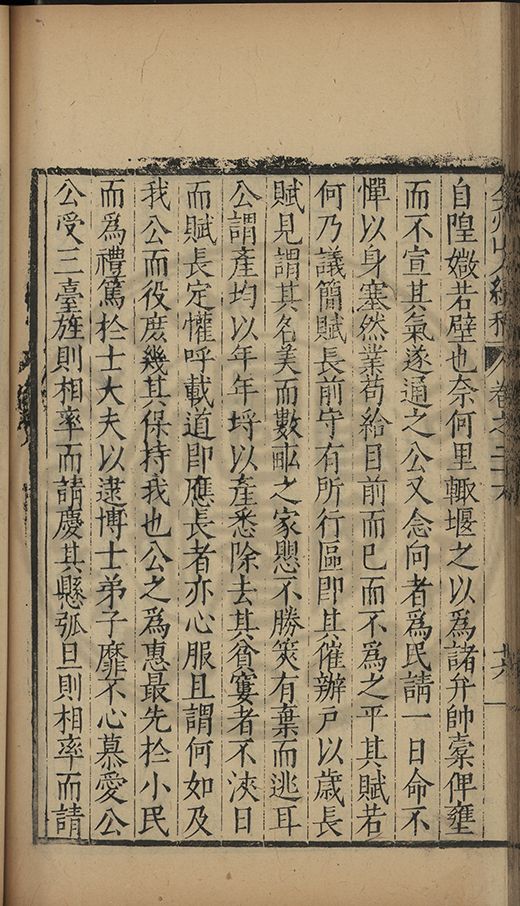 弇州山人續稿 卷之三十六 十六
自隍媺若壁也奈何里輙堰之以為諸弁帥槖俾壅
而不宣其氣遂通之公又念向者為民請一日命不
憚以身塞然業苟給目前而已而不為之平其賦若
何乃議簡賦長前守有所行區即其催辦戸以歲長
賦見謂其名美而數畝之家愳不勝筴有棄而逃耳
公謂產均以年年埒以產悉除去其貧寠者不浹日
而賦長定懽呼載道即應長者亦心服且謂何如及
我公而役庻幾其保持我也公之為惠最先於小民
而為禮篤於士大夫以逮博士弟子靡不心慕愛公
公受三臺旌則相率而請慶其懸弧旦則相率而請